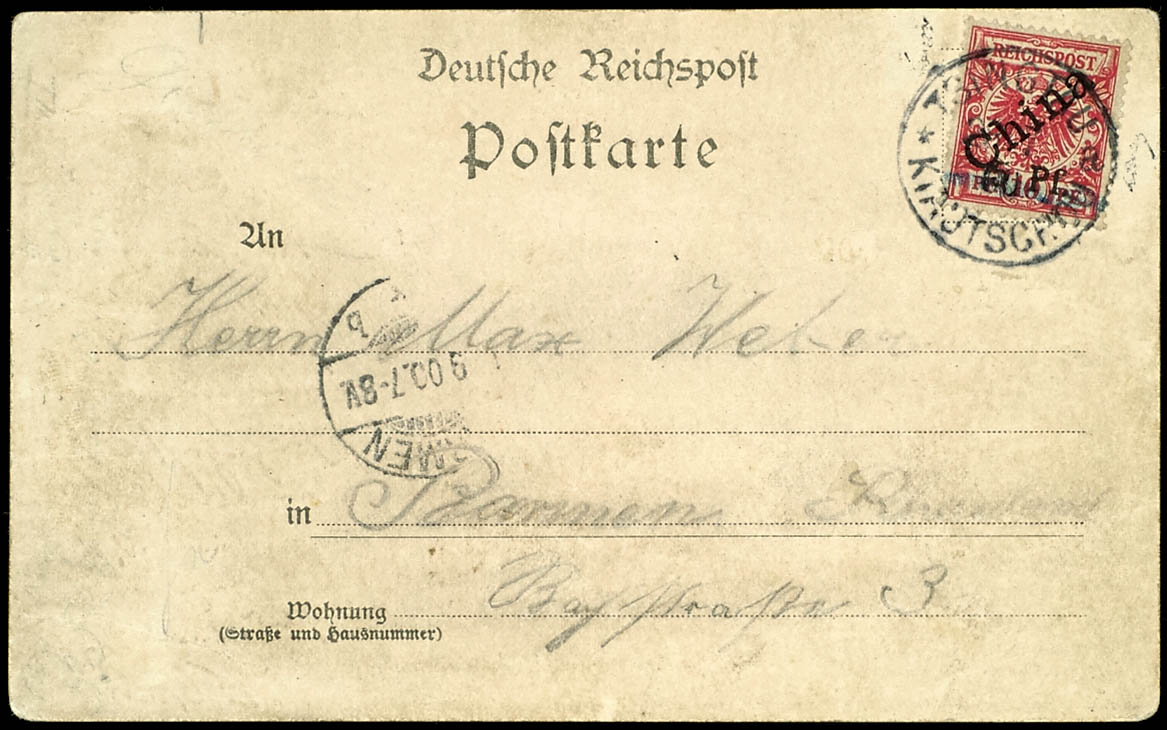 Deutsche Reichspost
Postkarte
REICHSPOST
China
KIAUTSCHOU
An
Herrn Max Weber
b
9 00.7-8V.
MEN
in Barmen Rheinland
Wohnung
(Straße und Hausnummer)
straße 3